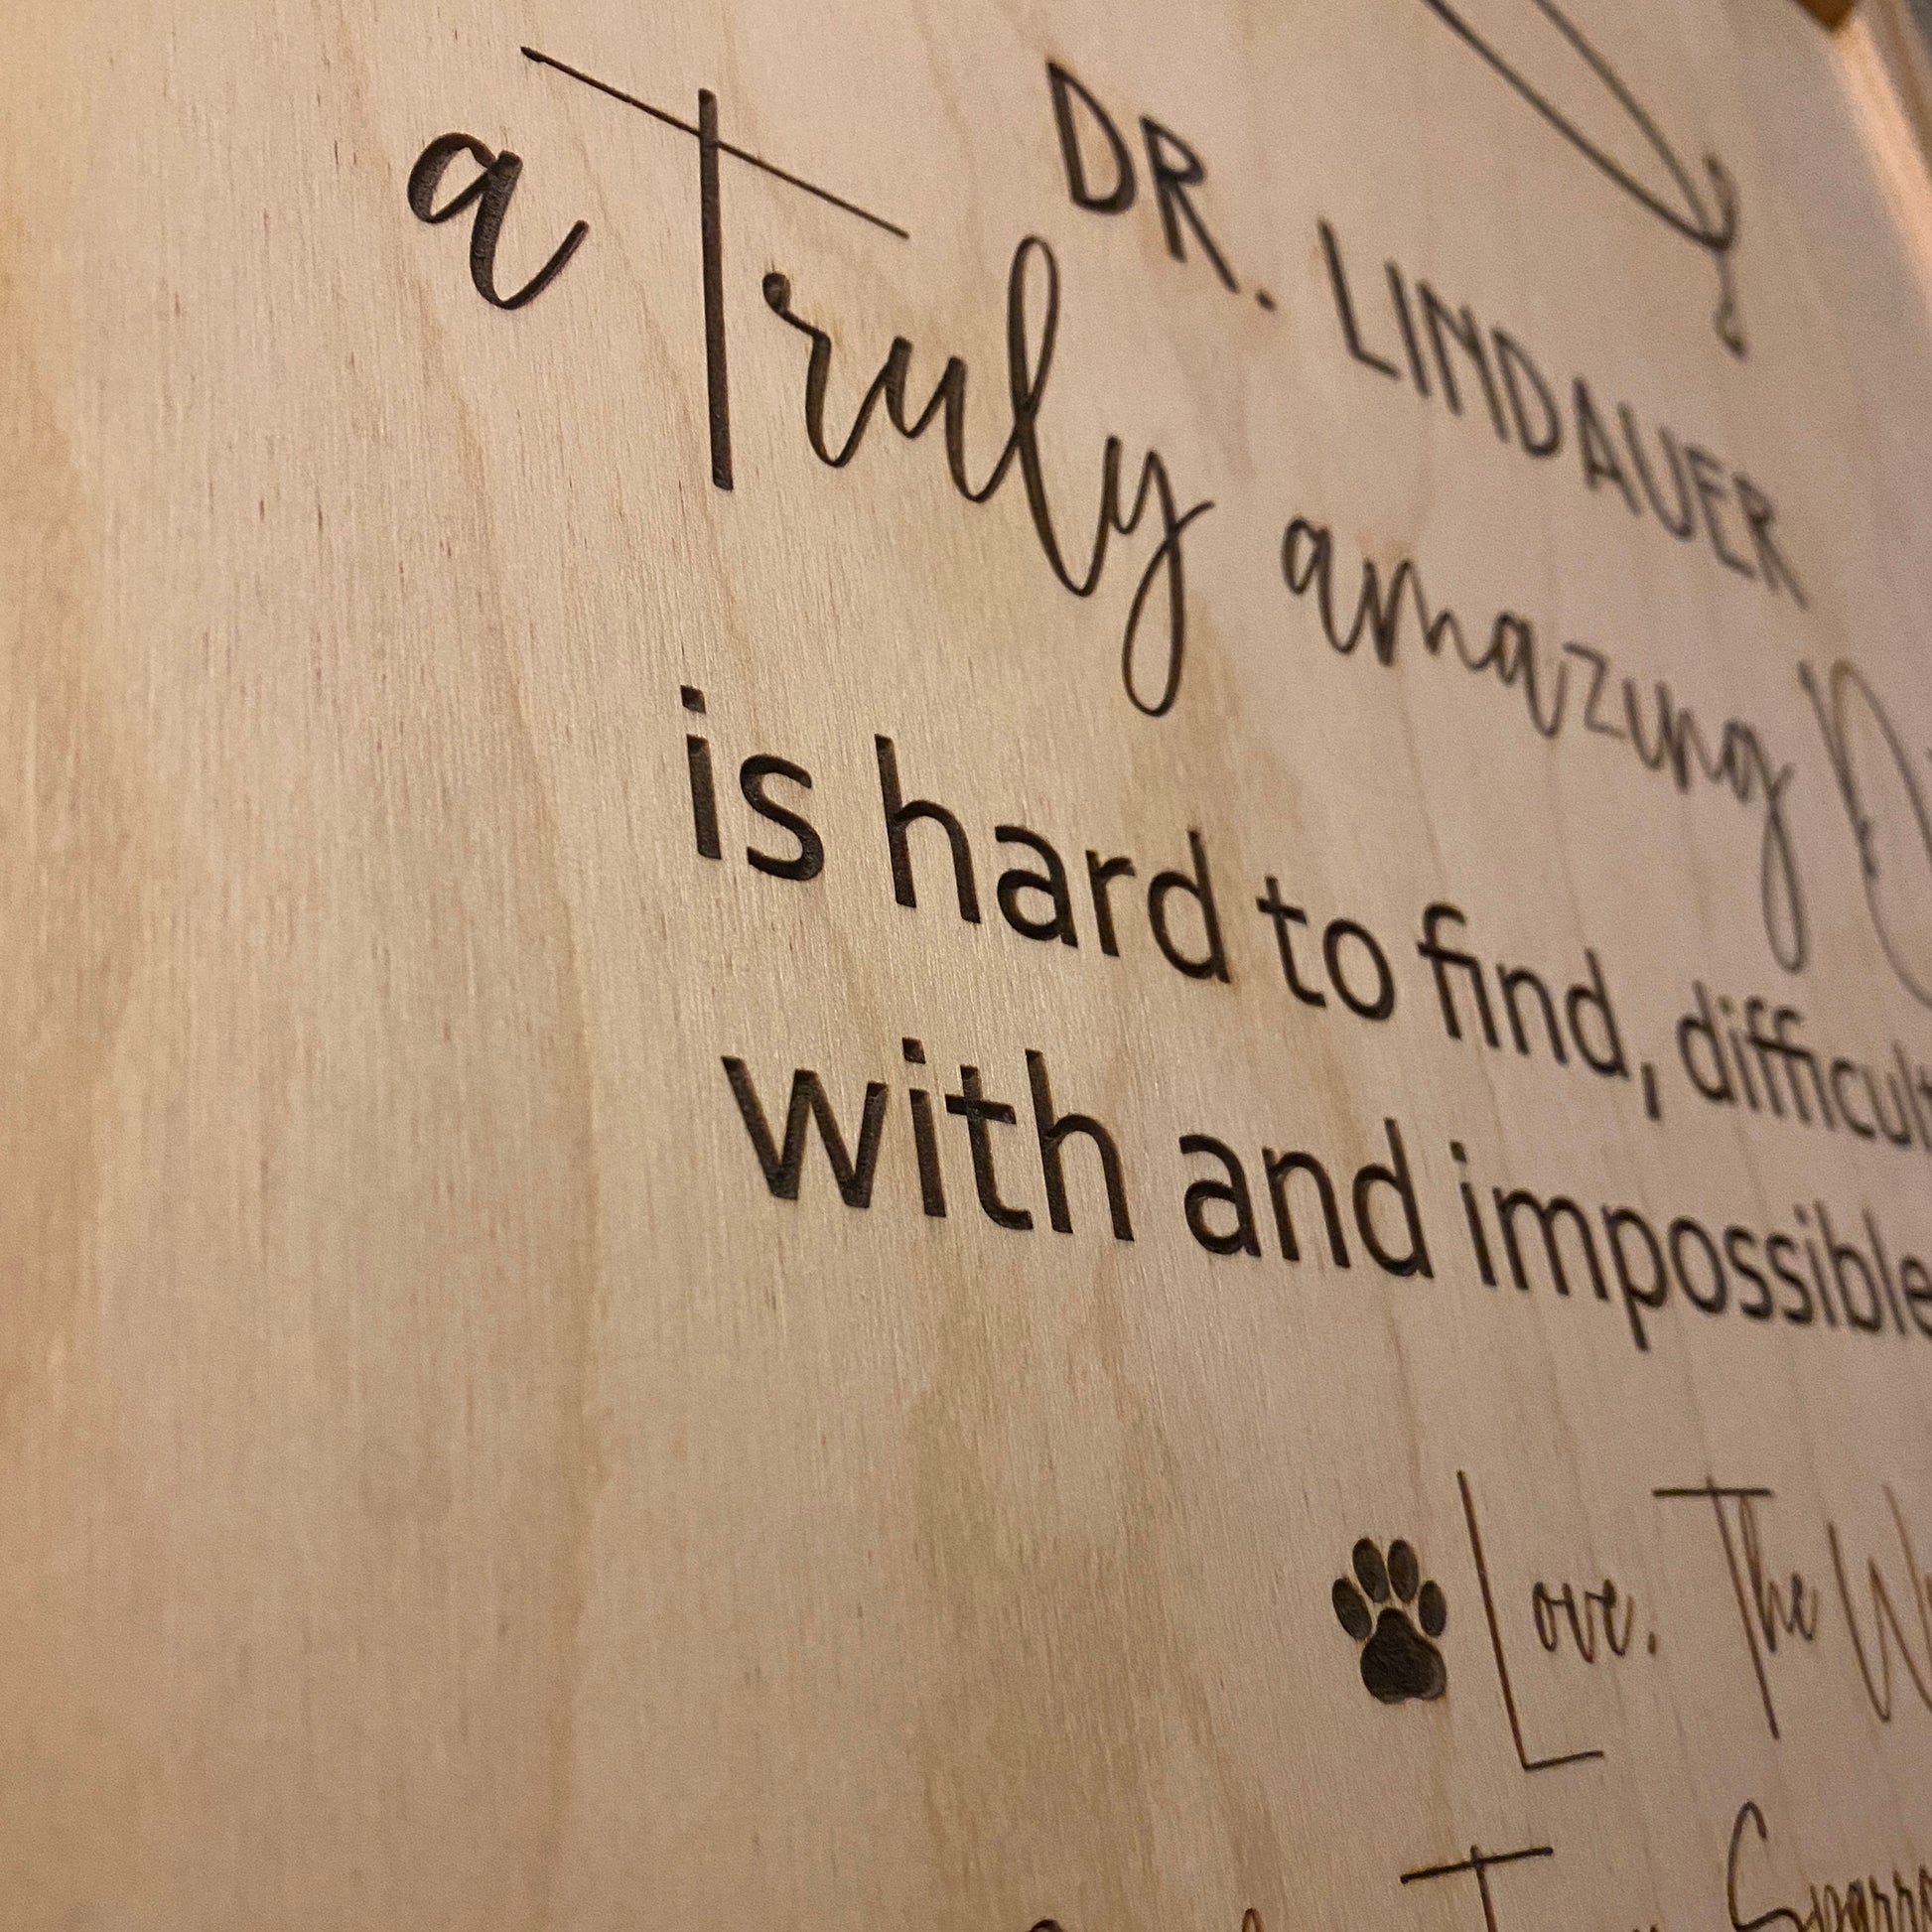 DR. LINDAUER
a Truly amazing
is hard to find, difficult
with and impossible
Love. The